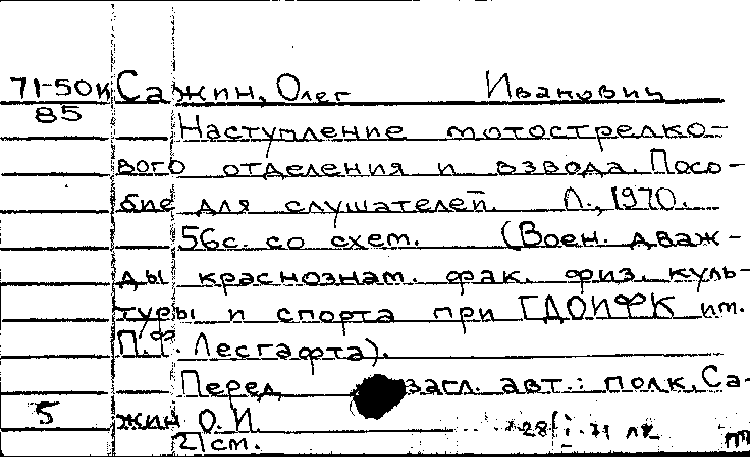 71-50к Сажин, Олег Иванович
85
Наступление мотострелко-
вого отделения и взвода. Посо-
бие для слушателей. Л., 1970.
56с. со схем. (Воен. дваж-
ды краснознам. фак. физ. куль-
туры и спорта при ГДОИФК им.
П.Ф. Лесгафта).
Перед загл. авт.: полк. Са-
5 жин О. И.
21см. 28/i·71